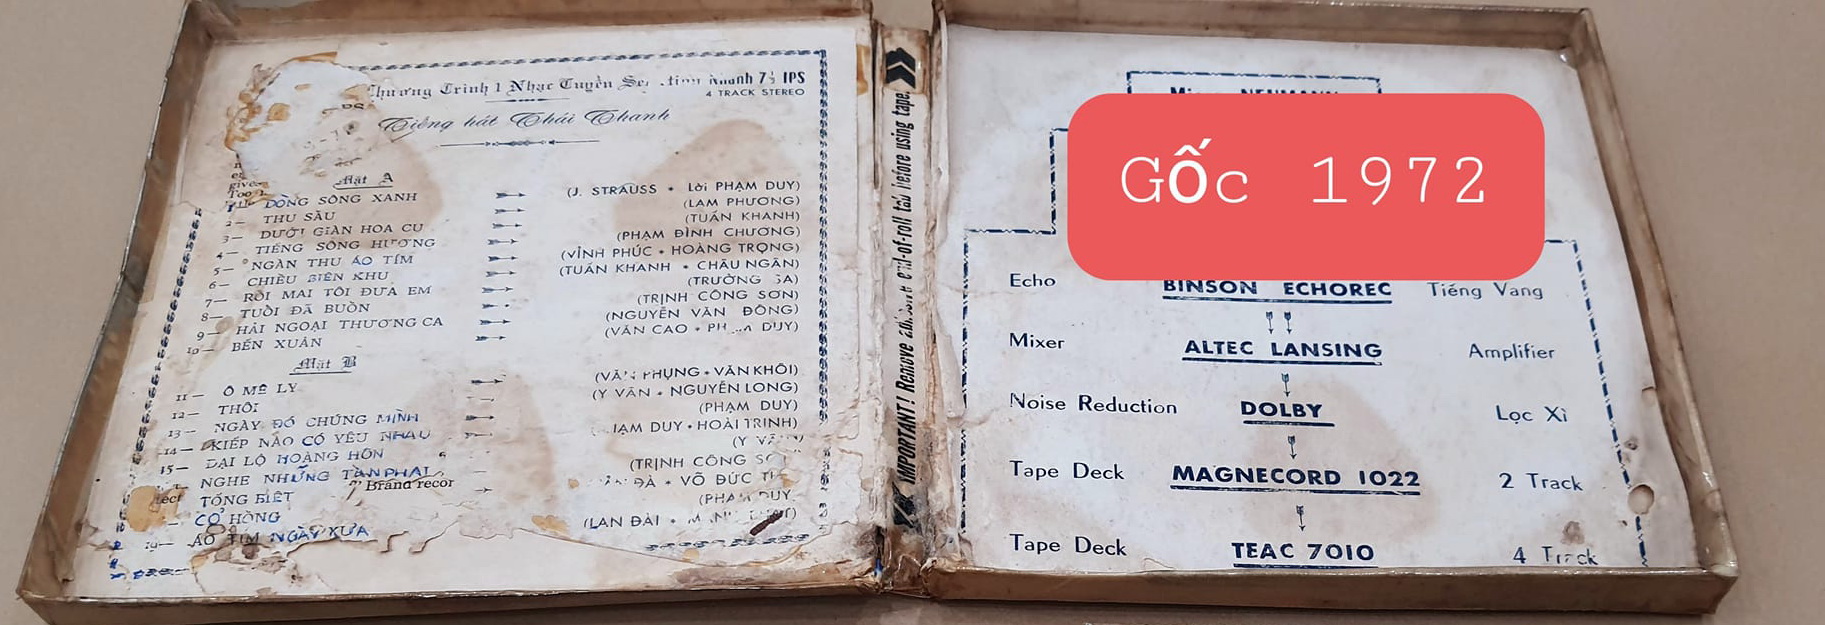 Chương Trình 1 Nhạc Tuyển Thanh 7½ IPS
4 TRACK STEREO
Tiếng hát Thái Thanh
Mặt A
DÒNG SÔNG XANH (J. STRAUSS • Lời PHẠM DUY)
2— THU SẦU (LAM PHƯƠNG)
3— DƯỚI GIÀN HOA CŨ (TUẤN KHANH)
4— TIẾNG SÔNG HƯƠNG (PHẠM ĐÌNH CHƯƠNG)
5— NGÀN THU ÁO TÍM (VĨNH PHÚC • HOÀNG TRỌNG)
6— CHIỀU BIÊN KHU (TUẤN KHANH • CHÂU NGÂN)
7— RỒI MAI TÔI ĐƯA EM (TRƯỜNG SA)
8— TUỔI ĐÃ BUỒN (TRỊNH CÔNG SƠN)
9— HẢI NGOẠI THƯƠNG CA (NGUYỄN VĂN ĐÔNG)
10— BẾN XUÂN (VĂN CAO • PHẠM DUY)
Mặt B
11— Ô MÊ LY (VĂN PHỤNG • VĂN KHÔI)
12— THÔI (Y VÂN • NGUYỄN LONG)
13— NGÀY ĐÓ CHÚNG MÌNH (PHẠM DUY)
14— KIẾP NÀO CÓ YÊU NHAU (PHẠM DUY • HOÀI TRINH)
15— ĐẠI LỘ HOÀNG HÔN (Y VÂN)
NGHE NHỮNG TÀN PHAI (TRỊNH CÔNG SƠN)
Brand recor
TỐNG BIỆT ĐÀ • VÕ ĐỨC
CỎ HỒNG (PHẠM DUY
19— ÁO TÍM NGÀY XƯA (LAN ĐÀI •
IMPORTANT! Remove adhesive end-of-roll tab before using tape.
Gốc 1972
Echo BINSON ECHOREC Tiếng Vang
Mixer ALTEC LANSING Amplifier
Noise Reduction DOLBY Lọc Xì
Tape Deck MAGNECORD 1022 2 Track
Tape Deck TEAC 7010 4 Track